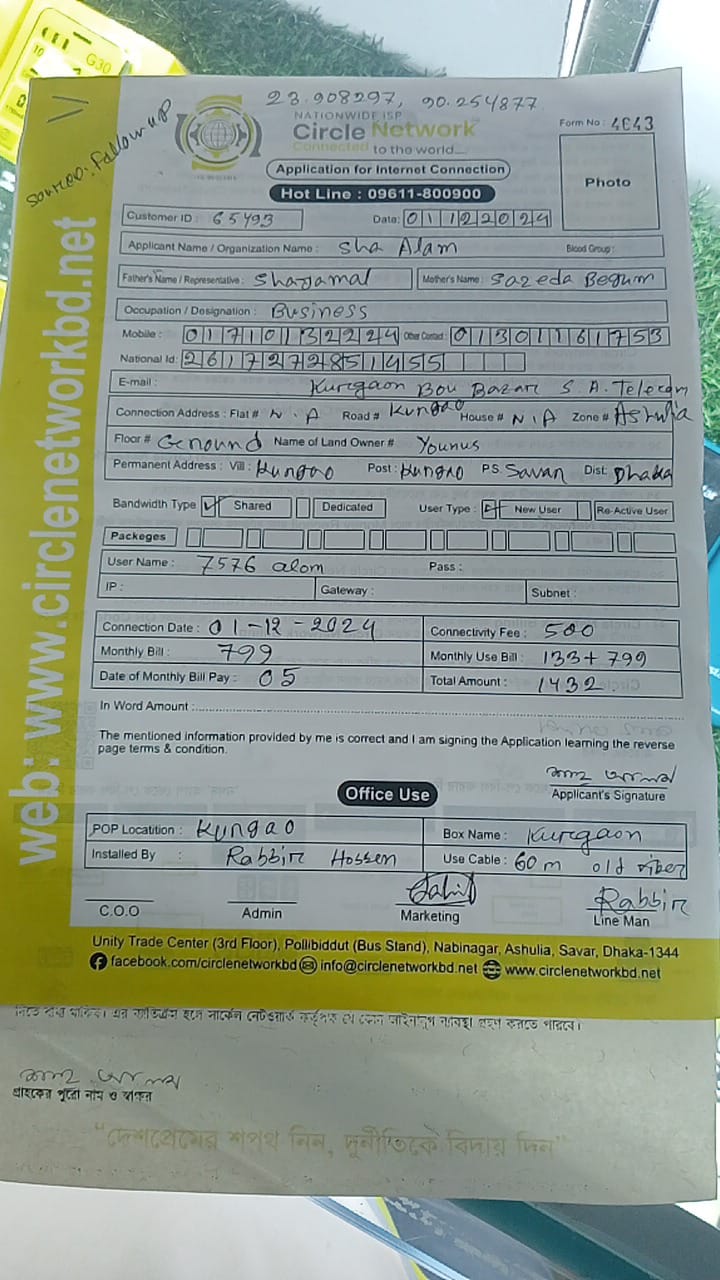 G30
23.908297, 90.254877
Source: Follow up
NATIONWIDE ISP
Circle Network
Connected to the world....
Form No : 4643
Application for Internet Connection
Photo
Hot Line : 09611-800900
Customer ID : 65493 Date: 01122024
Applicant Name / Organization Name : Sha Alam Blood Group:
Father's Name / Representative : Shajamal Mother's Name : Sazeda Begum
Occupation / Designation : Business
Mobile : 01710132224 Other Contact : 01301161753
National Id: 2617272851455
E-mail : Kurgaon Bou Bazar S.A. Telecom
Connection Address : Flat # N.A Road # Kungao House # N.A Zone # Ashulia
Floor # Ground Name of Land Owner # Younus
Permanent Address : Vill : Kungao Post : Kungao PS. Savar Dist: Dhaka
Bandwidth Type Shared Dedicated User Type : New User Re-Active User
Packeges
User Name : 7576 alom Pass :
IP : Gateway : Subnet :
Connection Date : 01-12-2024 Connectivity Fee : 500
Monthly Bill : 799 Monthly Use Bill : 133+799
Date of Monthly Bill Pay : 05 Total Amount : 1432
In Word Amount :
The mentioned information provided by me is correct and I am signing the Application learning the reverse
page terms & condition.
Applicant's Signature
Office Use
POP Locatition : Kungao Box Name : Kurgaon
Installed By : Rabbir Hossen Use Cable : 60m old fiber
Rabbir
C.O.O Admin Marketing Line Man
Unity Trade Center (3rd Floor), Pollibiddut (Bus Stand), Nabinagar, Ashulia, Savar, Dhaka-1344
facebook.com/circlenetworkbd info@circlenetworkbd.net www.circlenetworkbd.net
web: www.circlenetworkbd.net
দিতে বাধ্য থাকিব। এর ব্যতিক্রম হলে সার্কেল নেটওয়ার্ক কর্তৃপক্ষ যে কোন আইনানুগ ব্যবস্থা গ্রহণ করতে পারবে।
গ্রাহকের পুরো নাম ও স্বাক্ষর
“দেশপ্রেমের শপথ নিন, দুর্নীতিকে বিদায় দিন”